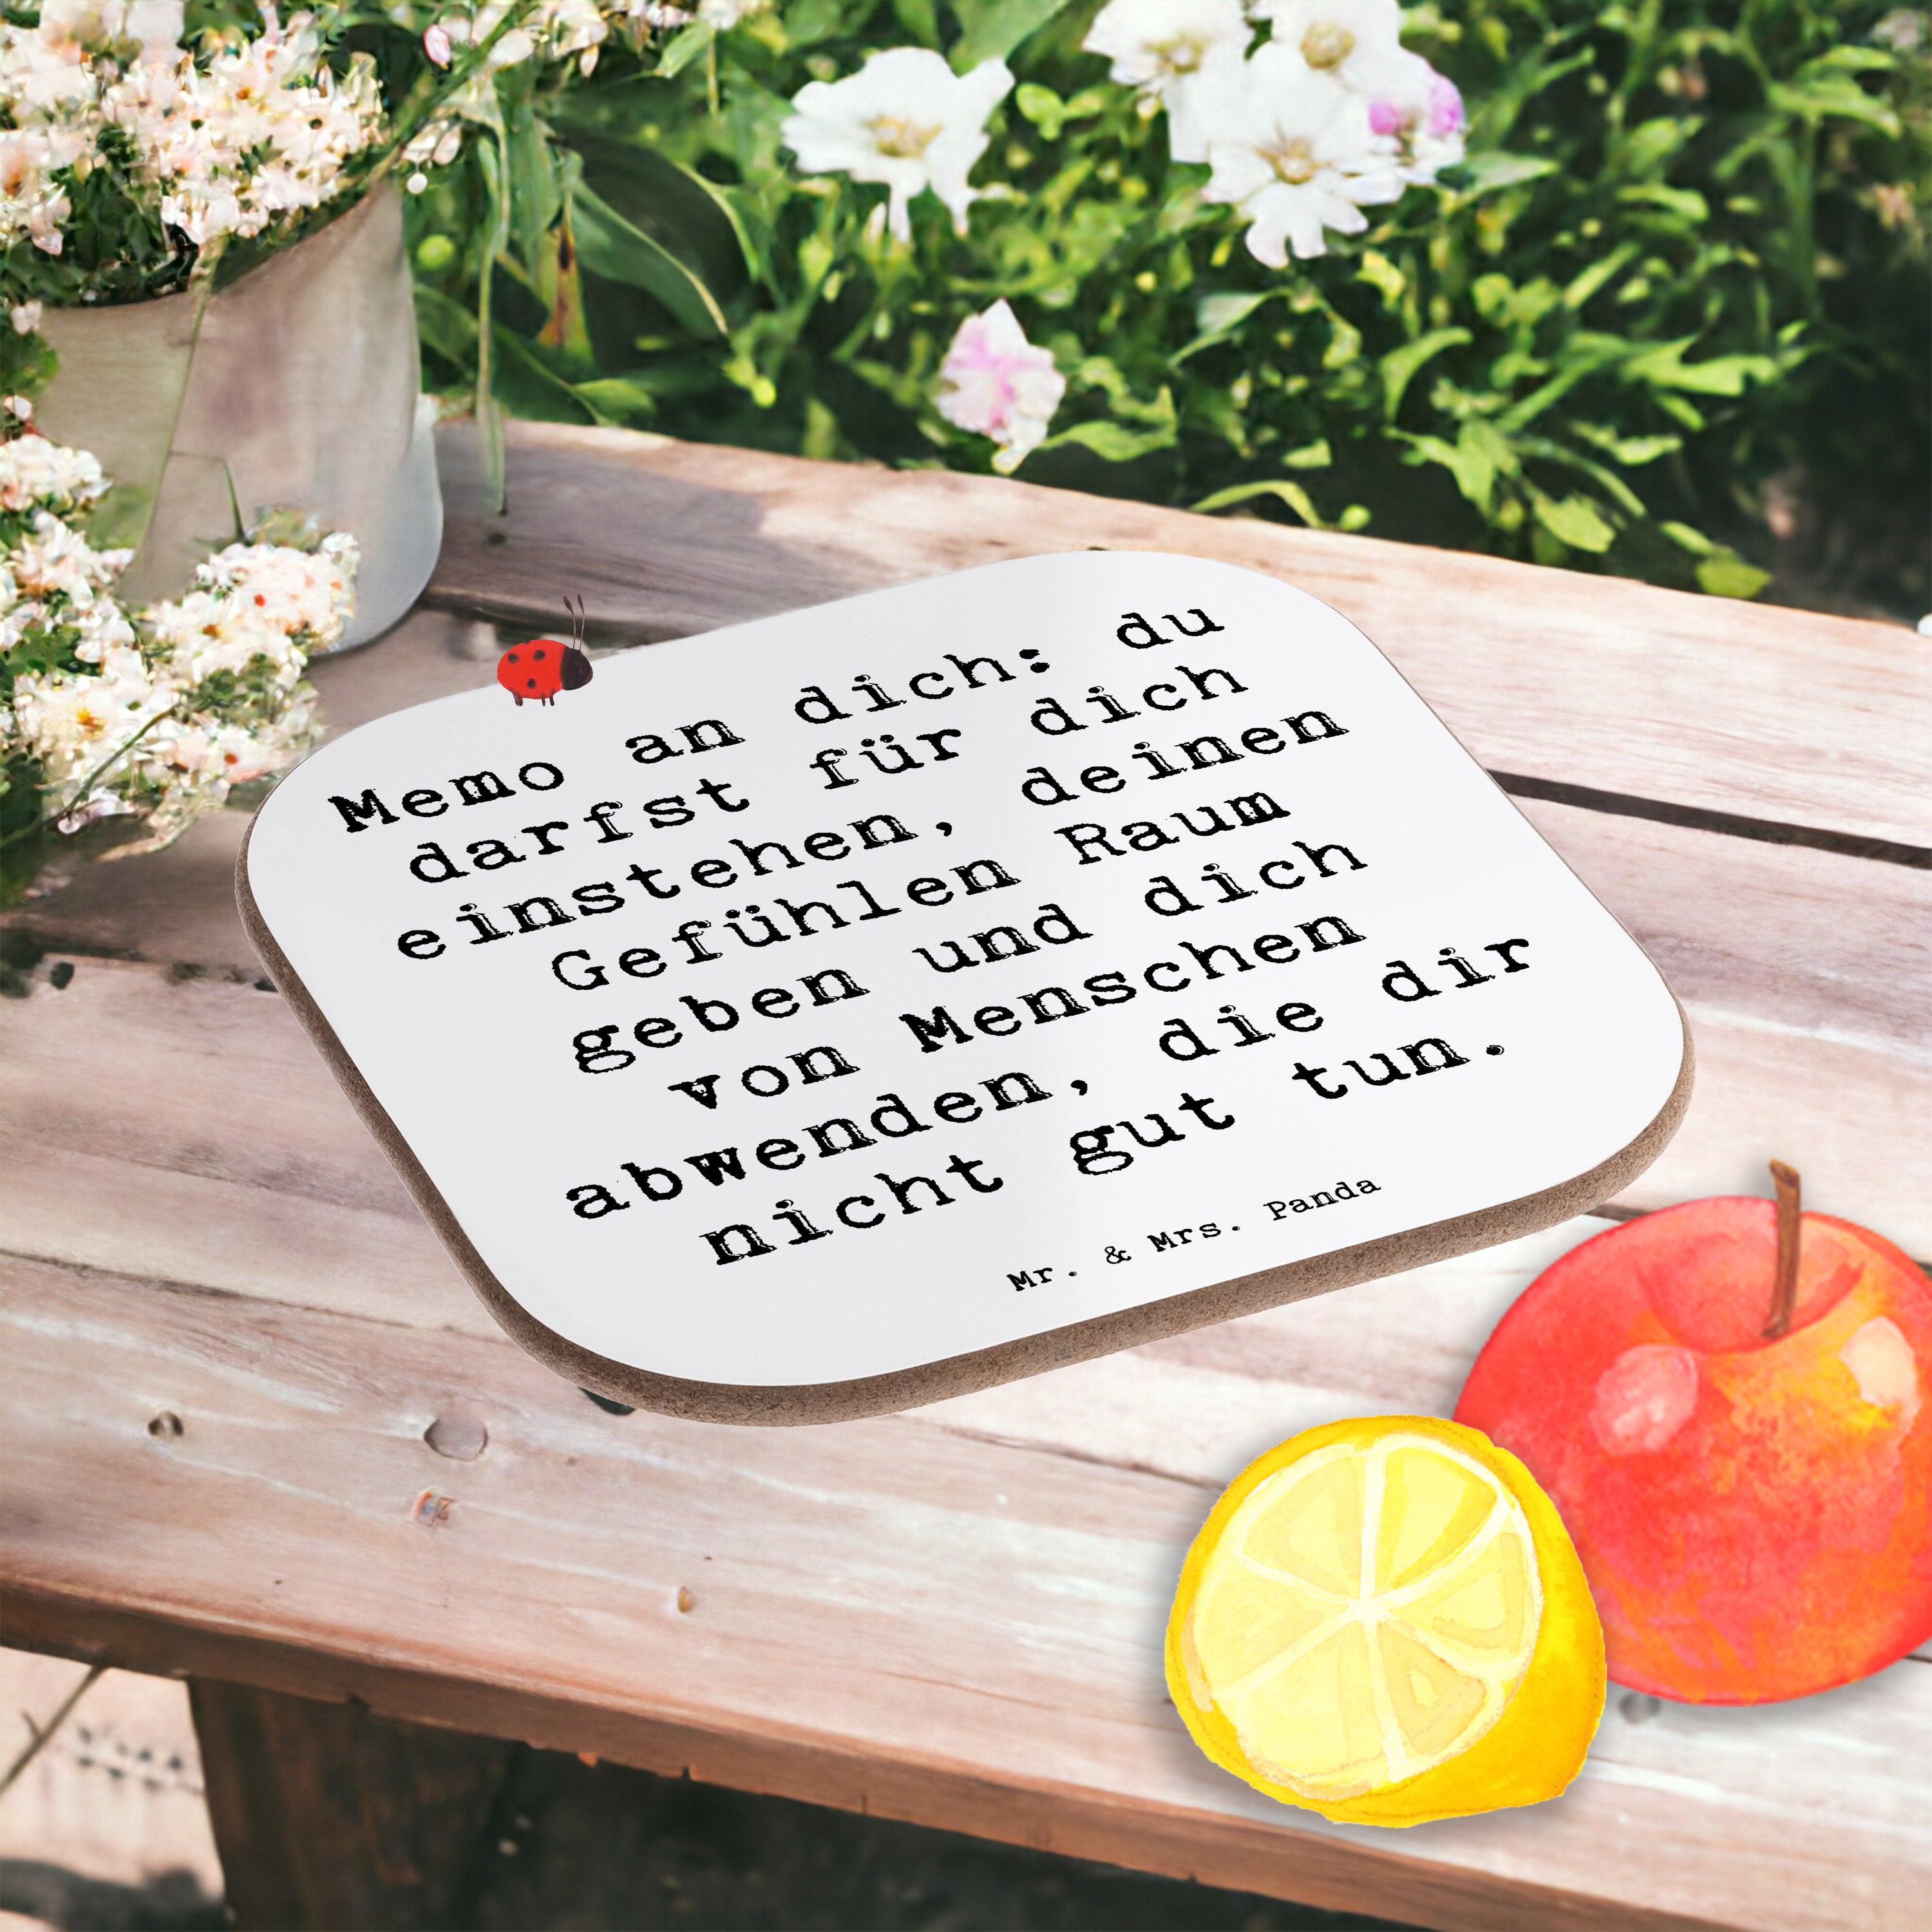 Memo an dich: du
darfst für dich
einstehen, deinen
Gefühlen Raum
geben und dich
von Menschen
abwenden, die dir
nicht gut tun.
Mr. & Mrs. Panda